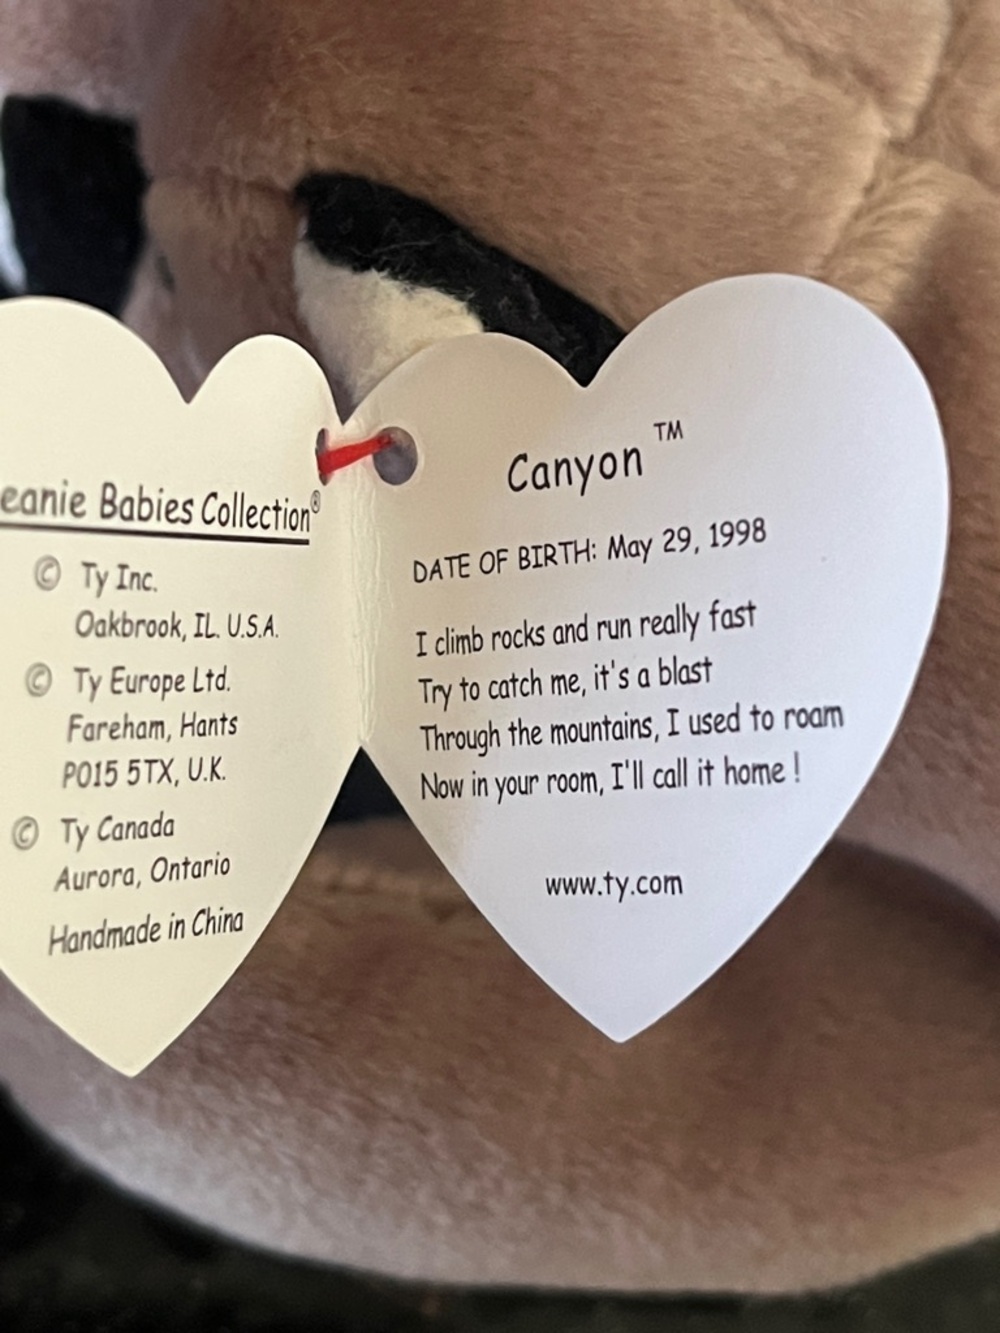 eanie Babies Collection®
© Ty Inc.
Oakbrook, IL. U.S.A.
© Ty Europe Ltd.
Fareham, Hants
PO15 5TX, U.K.
© Ty Canada
Aurora, Ontario
Handmade in China
Canyon ™
DATE OF BIRTH: May 29, 1998
I climb rocks and run really fast
Try to catch me, it's a blast
Through the mountains, I used to roam
Now in your room, I'll call it home !
www.ty.com